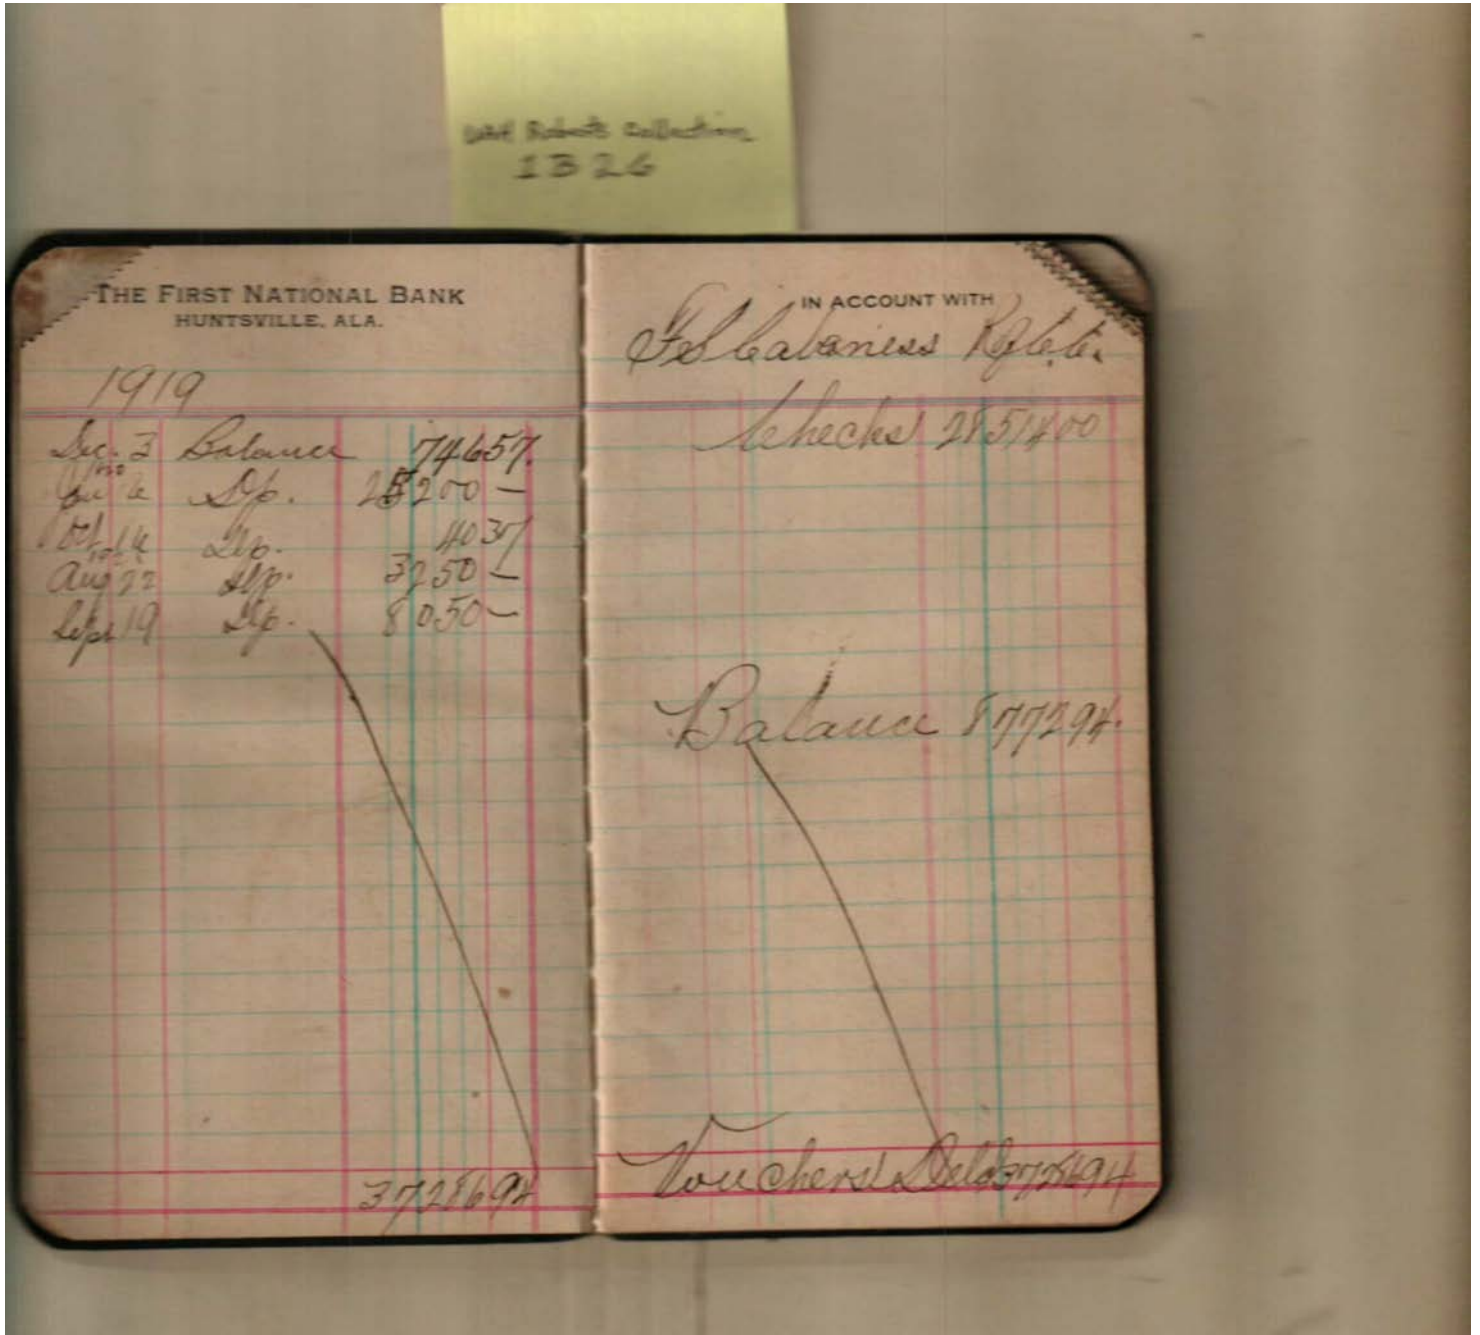 UAH Roberts Collection
1B26
THE FIRST NATIONAL BANK
HUNTSVILLE, ALA.
1919
Dec. 3 Balance 74657
Dp. 25200 —
Oct 14 Dep. 4037
Aug 22 Dep. 3250 —
Sept 19 Dp. 8050 —
3728694
IN ACCOUNT WITH
Cabaniss
Checks 2851400
Balance 877294
Vouchers Deld 3728694